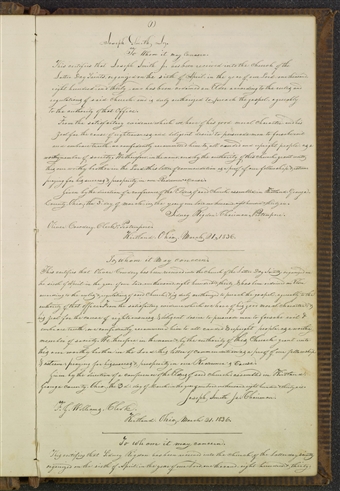 (1)
Joseph Smith, Jr.
To Whom it may concern
This certifies that Joseph Smith Jr. has been received into the church of the
Latter Day Saints organized on the sixth of April in the year of our Lord one thousand
eight hundred and thirty, and has been ordained an Elder according to the rules and
regulations of said Church and is duly authorized to preach the gospel agreeably
to the authority of that office.
From the satisfactory evidence which we have of his good moral character and his
zeal for the cause of righteousness and diligent desire to persuade men to forsake evil
and embrace truth, we confidently recommend him to all candid and upright people as a
worthy member of society. We therefore in the name and by the authority of this church grant unto
this our worthy brother in the Lord this letter of commendation as a proof of our fellowship and esteem
praying for his success & prosperity in our Redeemers cause.
Given by the direction of a conference of the Elders of said church assembled in Kirtland Geauga
County, Ohio, the 3 day of March in the year of our Lord one thousand eight hundred thirty six.
Sidney Rigdon Chairman
Oliver Cowdery, Clerk
Kirtland Ohio, March 31, 1836.
To whom it may concern
This certifies that Oliver Cowdery has been received into the church of the Latter Day Saints organized on
the sixth of April in the year of our Lord one thousand eight hundred & thirty & has been ordained an Elder
according to the rules & regulations of said Church & is duly authorized to preach the gospel agreeably to the
authority of that office. From the satisfactory evidence which we have of his good moral character &
his zeal for the cause of righteousness & diligent desire to persuade men to forsake evil &
embrace truth we confidently recommend him to all candid & upright people as a worthy
member of society. We therefore in the name & by the authority of this Church grant unto
this our worthy brother in the Lord this letter of commendation as a proof of our fellowship
& esteem praying for his success & prosperity in our Redeemer's cause.
Given by the direction of a conference of the Elders of said church assembled in Kirtland
Geauga county Ohio, the 3d day of March in the year of our Lord one thousand eight hundred thirty six
Joseph Smith Jr Chairman
F. G. Williams, Clerk
Kirtland Ohio, March 31. 1836.
To whom it may concern
This certifies that Sidney Rigdon has been received into the church of the Latter Day Saints
organized on the sixth of April in the year of our Lord one thousand eight hundred & thirty